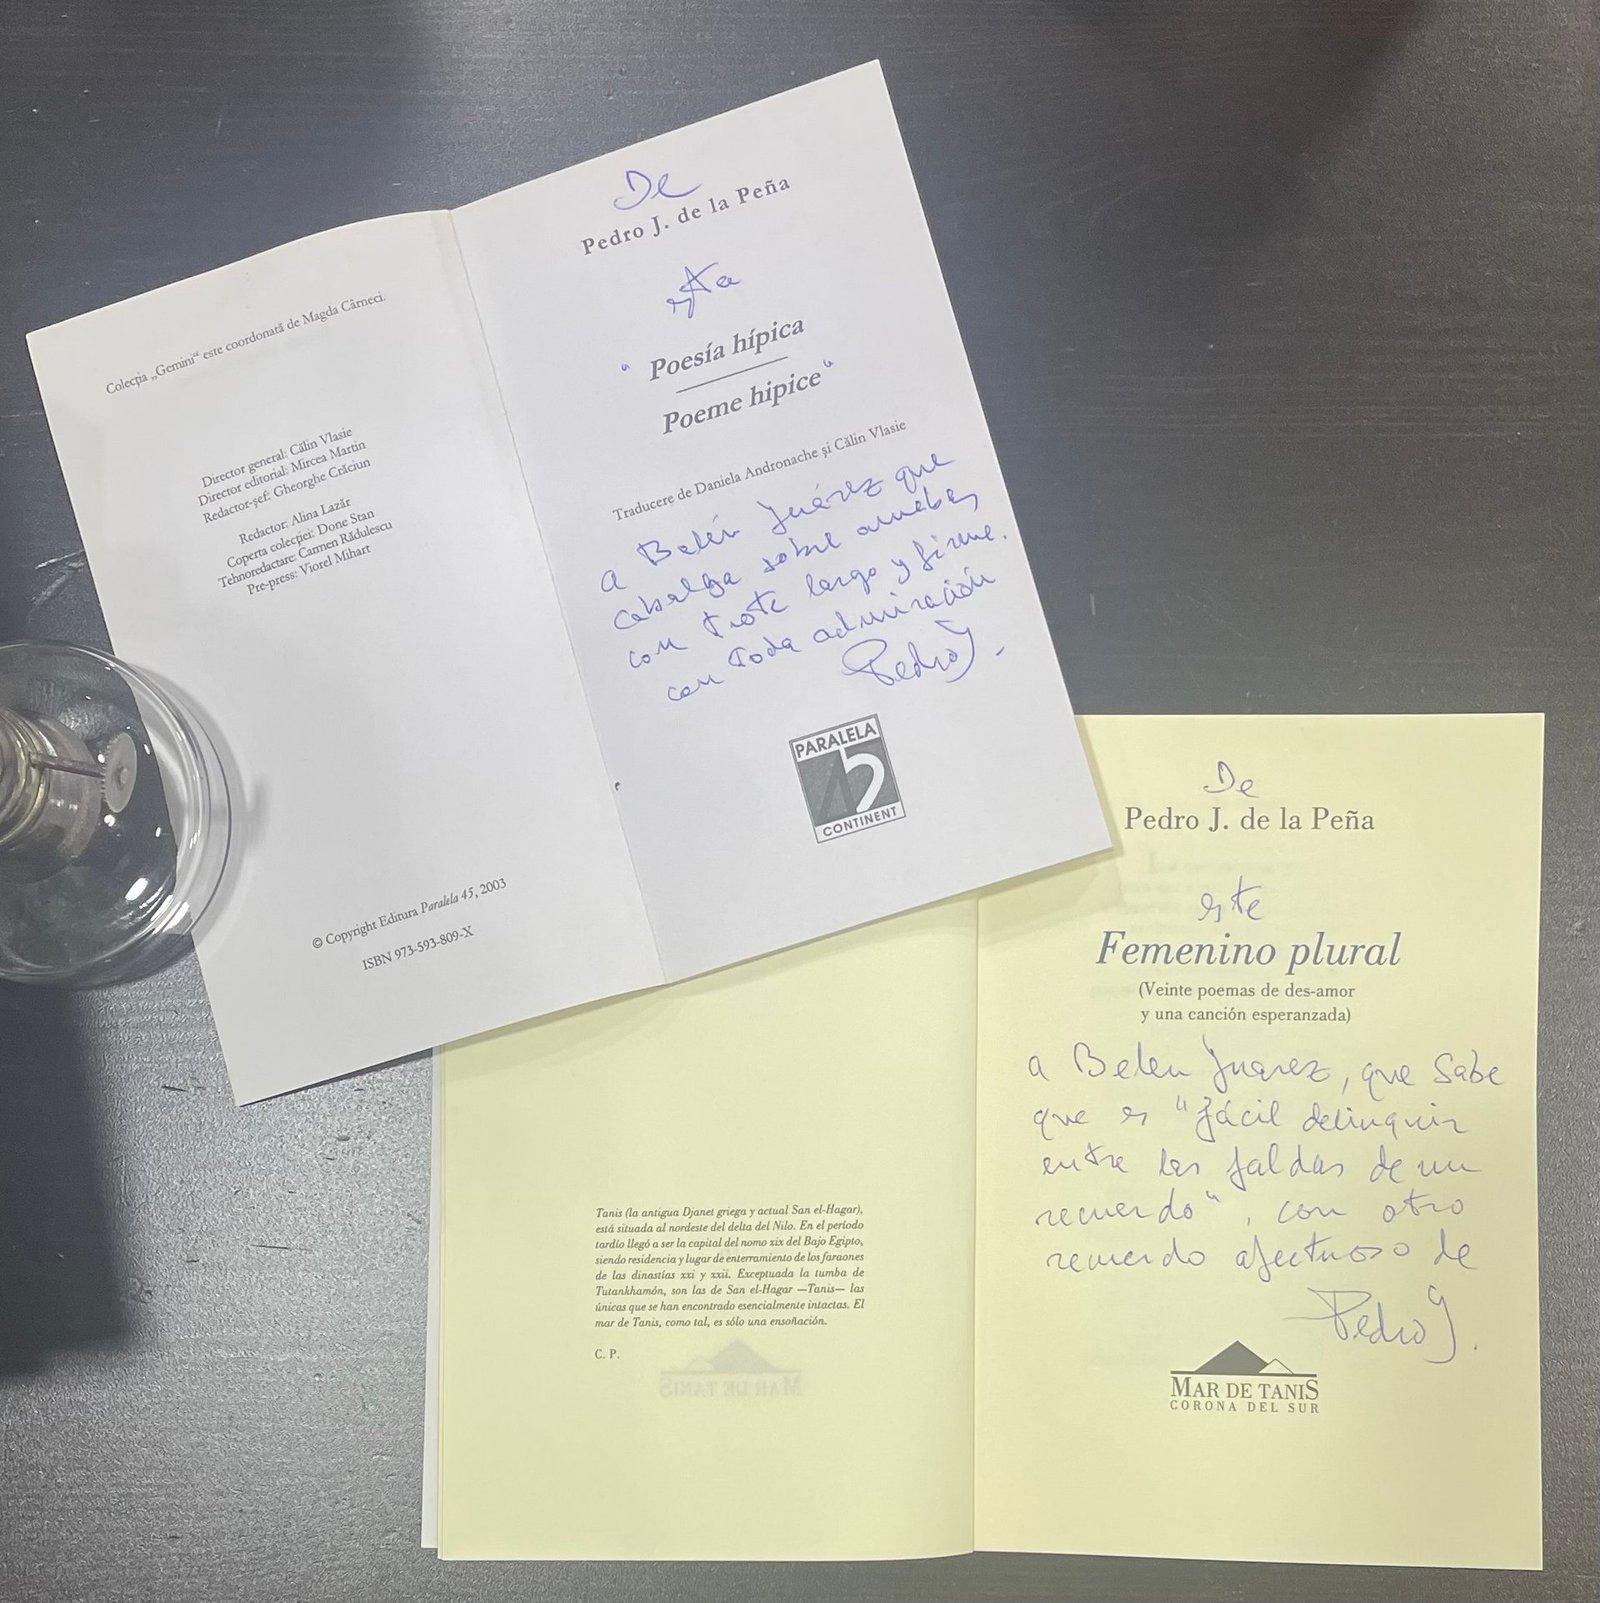 Colecția „Gemini“ este coordonată de Magda Cârneci.
Director general: Călin Vlasie
Director editorial: Mircea Martin
Redactor-șef: Gheorghe Crăciun
Redactor: Alina Lazăr
Coperta colecției: Done Stan
Tehnoredactare: Carmen Rădulescu
Pre-press: Viorel Mihart
© Copyright Editura Paralela 45, 2003
ISBN 973-593-809-X
De
Pedro J. de la Peña
esta
"Poesía hípica
Poeme hipice"
Traducere de Daniela Andronache și Călin Vlasie
a Belén Juárez que
cabalga sobre ambas
con trote largo y firme.
con toda admiración
Pedro J.
PARALELA
45
CONTINENT
Tanis (la antigua Djanet griega y actual San el-Hagar),
está situada al nordeste del delta del Nilo. En el período
tardío llegó a ser la capital del nomo xix del Bajo Egipto,
siendo residencia y lugar de enterramiento de los faraones
de las dinastías xxi y xxii. Exceptuada la tumba de
Tutankhamón, son las de San el-Hagar —Tanis— las
únicas que se han encontrado esencialmente intactas. El
mar de Tanis, como tal, es sólo una ensoñación.
C. P.
De
Pedro J. de la Peña
este
Femenino plural
(Veinte poemas de des-amor
y una canción esperanzada)
a Belen Juarez, que sabe
que es "fácil delinquir
entre las faldas de un
recuerdo", con otro
recuerdo afectuoso de
Pedro J.
MAR DE TANIS
CORONA DEL SUR